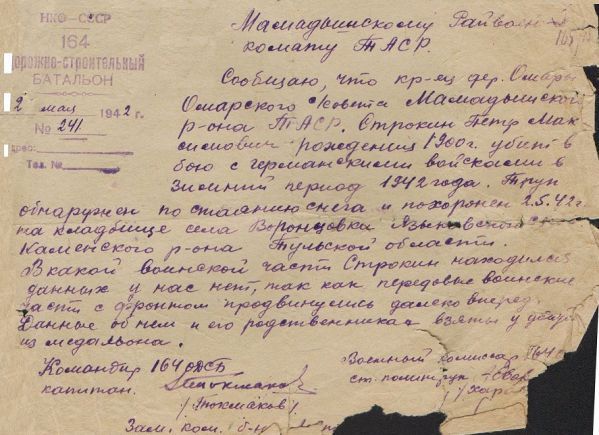 НКО-СССР
164
дорожно-строительный
БАТАЛЬОН
2 мая 1942 г.
№ 241
Адрес:
Тел. №
Мамадышскому Райвоен-
комату ТАСР.
Сообщаю, что кр-ец дер. Омары
Омарского с/совета Мамадышской
р-она ТАСР. Строкин Петр Мак
симович рождения 1900г. убит в
бою с германскими войсками в
зимний период 1942 года. Труп
обнаружен по стаянию снега и похоронен 2.5.42г.
на кладбище села Воронцовка Языковского с/с
Каменского р-она Тульской области.
В какой воинской части Строкин находился
данных у нас нет, так как передовые воинские
части с фронтом продвинулись далеко вперед.
Данные об нем и его родственниках взяты у убитого
из медальона.
Командир 164 ОДСБ
капитан.
/Токмаков/
Военный комиссар 164 О
ст. политрук
/Хар
Зам. ком. б-на